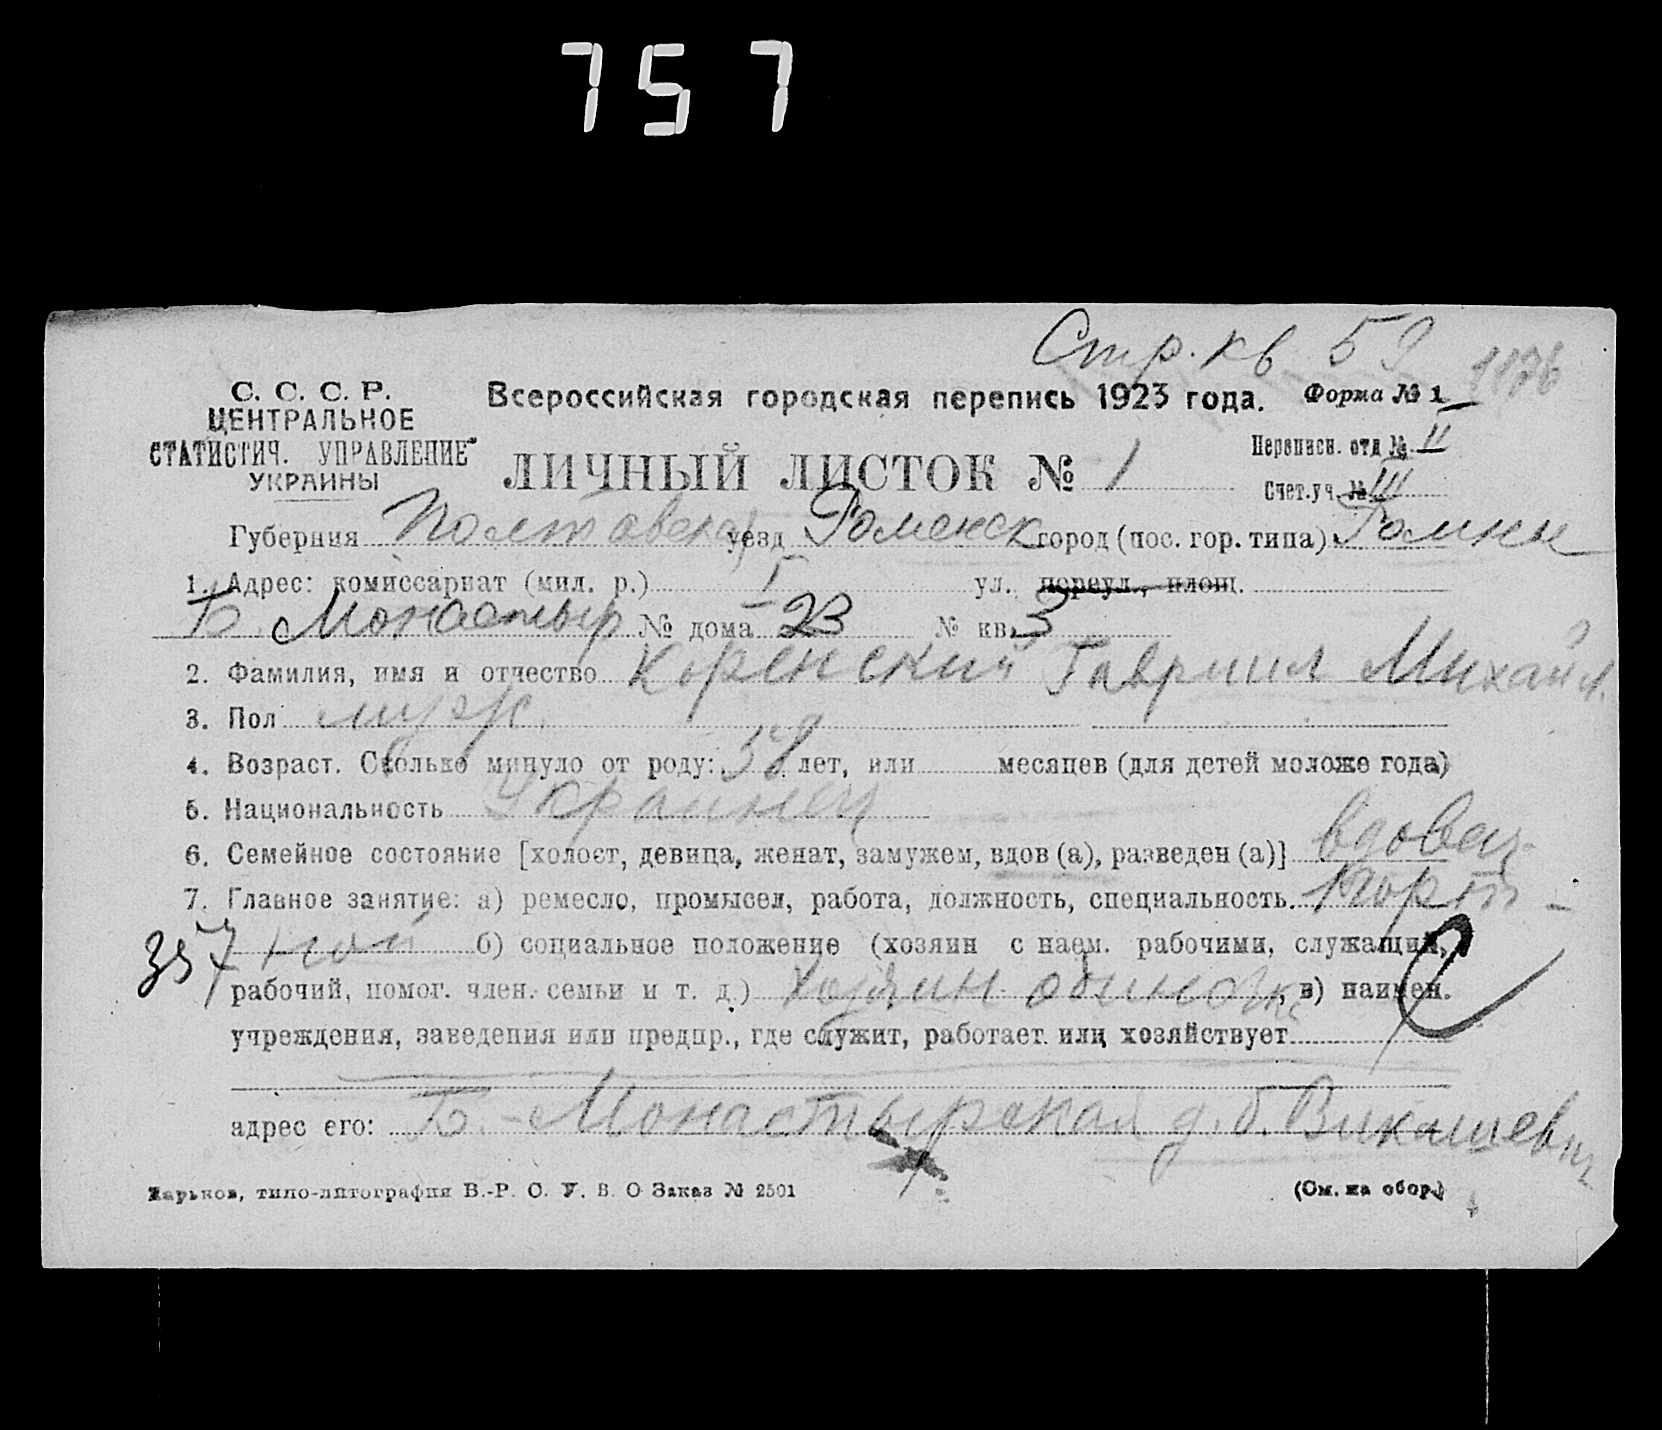 757
Стр. кв 59 1176
С. С. С. Р. Всероссийская городская перепись 1923 года. Форма № 1
ЦЕНТРАЛЬНОЕ
СТАТИСТИЧ. УПРАВЛЕНИЕ
УКРАИНЫ
ЛИЧНЫЙ ЛИСТОК № 1
Переписн. отд № II
Счет. уч. № III
Губерния Полтавска уезд Роменск город (пос. гор. типа) Ромны
1. Адрес: комиссариат (мил. р.) I ул. переул., площ.
Б. Монастыр № дома 23 № кв. 3
2. Фамилия, имя и отчество Коренский Гавриил Михайл.
3. Пол муж.
4. Возраст. Сколько минуло от роду: 58 лет, или месяцев (для детей моложе года)
5. Национальность Украинец
6. Семейное состояние [холост, девица, женат, замужем, вдов (а), разведен (а)] вдовец
7. Главное занятие: а) ремесло, промысел, работа, должность, специальность. Порт-
357 ной б) социальное положение (хозяин с наем. рабочими, служащий,
рабочий, помог. член. семьи и т. д.) Хозяин одиночка, в) наимен.
учреждения, заведения или предпр., где служит, работает или хозяйствует
адрес его: Б.-Монастырская д. б.
Харьков, типо-литография В.-Р. С. У. В. О Заказ № 2501 (См. на обор.)